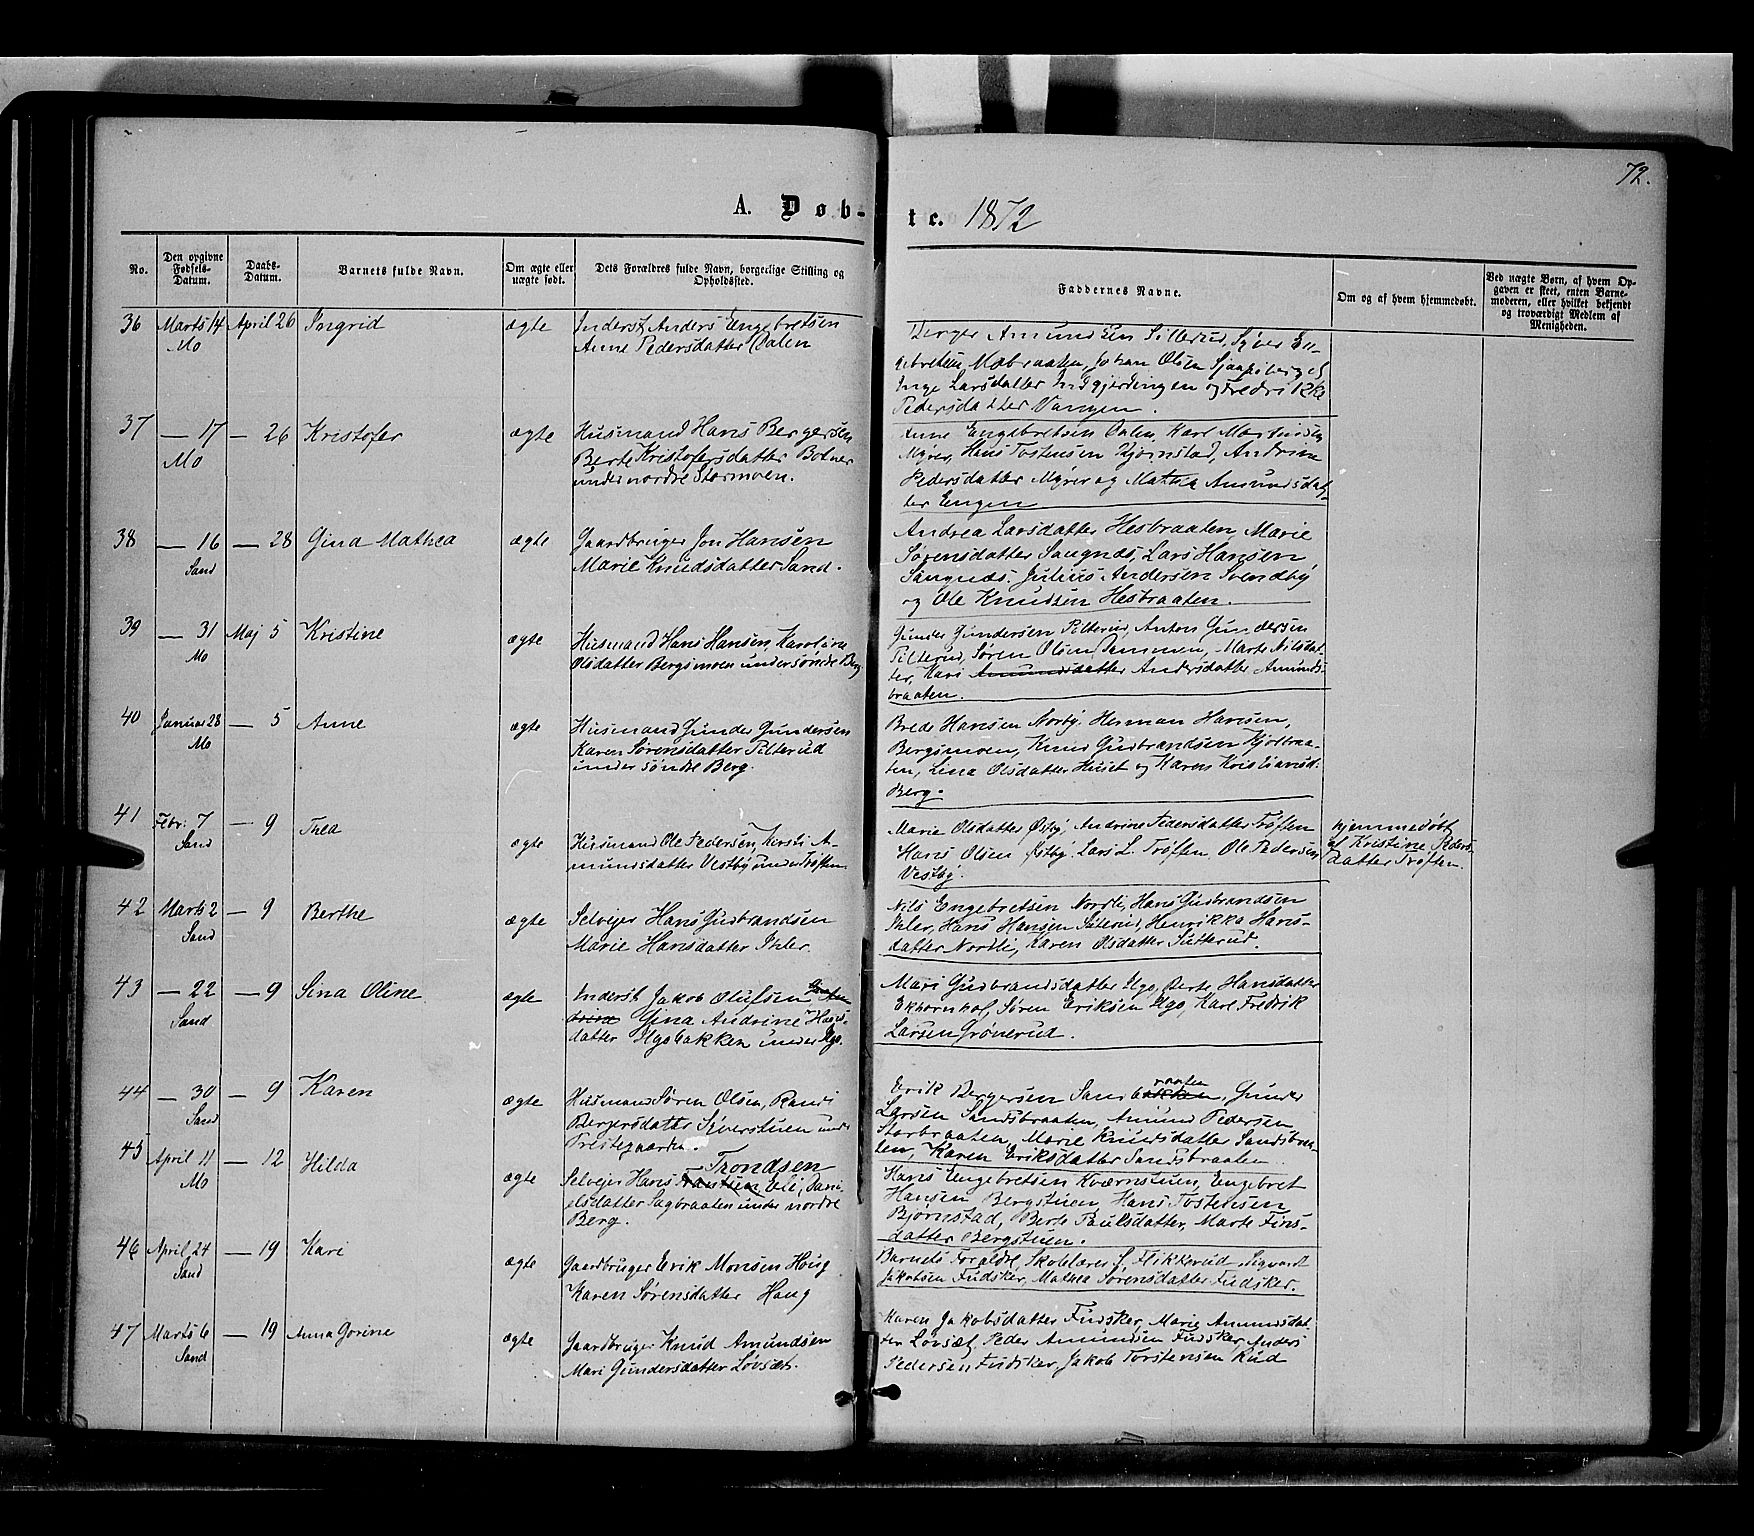 72.
A. Døb-
te. 1872
No.
Den opgivne
Fødsels-
Datum.
Daabs-
Datum.
Barnets fulde Navn.
Om ægte eller
uægte født.
Dets Forældres fulde Navn, borgerlige Stilling og
Opholdssted.
Faddernes Navne.
Om og af hvem hjemmedøbt.
Ved uægte Børn, af hvem Op-
gaven er skeet, enten Barne-
moderen, eller hvilket bekjendt
og troværdigt Medlem af
Menigheden.
36 Marts 14 April 26 Ingrid ægte Inderst Anders Engebretsen
Mo Anne Pedersdatter Dalen
Berger Amundsen Sillerud, Syver En-
gebretsen Mobraaten, Johan Olsen
Inge Larsdatter Indgjerdingen og Fredrikke
Pedersdatter Vangen.
37 — 17 — 26 Kristofer ægte Husmand Hans Bergersen
Mo Berte Kristofersdatter Botner
under nordre Stormoen.
Anne Engebretsen Dalen, Karl Martinsen
Myrer, Hans Tostensen Bjørnstad, Andrine
Pedersdatter Myrer og Mathea Amundsdat-
ter Engen
38 — 16 — 28 Gina Mathea ægte Gaardbruger Jon Hansen
Sand Marie Knudsdatter Sand.
Andrea Larsdatter Hesbraaten Marie
Sørensdatter Sangnæs, Lars Hansen
Sangnæs. Julius Andersen Svendby
og Ole Knudsen Hesbraaten.
39 — 31 Maj 5 Kristine ægte Husmand Hans Hansen, Karoline
Mo Olsdatter Bergsmoen under søndre Berg
Gunder Gundersen Pilterud, Anton Gundersen
Pilterud, Søren Olsen Tømmen, Marte Nilsdat-
ter, Kari Amundsdatter Andersdatter Amunds-
braaten.
40 Januar 28 — 5 Anne ægte Husmand Gunder Gundersen
Mo Karen Sørensdatter Pilterud
under søndre Berg.
Brede Hansen Norby. Herman Hansen,
Bergsmoen, Knud Gudbrandsen Kjølbraa-
ten, Lina Olsdatter Huset og Karen Kristiansd.
Berg.
41 Febr: 7 — 9 Thea ægte Husmand Ole Pedersen, Kersti A-
Sand mundsdatter Vestby under Trøften
Marie Olsdatter Østby, Andrine Pedersdatter Trøften
Hans Olsen Østby. Lars L. Trøften, Ole Pedersen,
Vestby.
hjemmedøbt
af Kristine Peders-
datter Trøften.
42 Marts 2 — 9 Berthe ægte Selvejer Hans Gudbrandsen
Sand Marie Hansdatter Ihler.
Nils Engebretsen Nordli, Hans Gudbrandsen
Ihler, Hans Hansen Sætterud, Henrikka Hans-
datter Nordli, Karen Olsdatter Sætterud.
43 — 22 — 9 Sina Oline ægte Inderst Jakob Olufsen
Sand Gina Andrine Hans-
datter Ilgobakken under Ilgo.
Mari Gudbrandsdatter Ilgo, Berte Hansdatter
Ekhornhol, Søren Eriksen Ilgo, Karl Fredrik
Larsen Grønerud.
44 — 30 — 9 Karen ægte Husmand Søren Olsen, Randi
Sand Bergersdatter Syverstuen under
Prestegaarden.
Erik Bergersen Sandbraaten, Gunder
Larsen Sandsbraaten, Amund Pedersen
Storbraaten, Marie Knudsdatter Sandsbraa-
ten, Karen Eriksdatter Sandsbraaten.
45 April 11 — 12 Hilda ægte Selvejer Hans Trondsen Eli, Dani-
Mo elsdatter Sagbraaten under nordre
Berg.
Hans Engebretsen Kværnstuen, Engebret
Hansen Bergstuen, Hans Tostensen
Bjørnstad, Berte Paulsdatter, Marte Fins-
datter Bergstuen.
46 April 24 — 19 Kari ægte Gaardbruger Erik Monsen Houg
Sand Karen Sørensdatter Haug
Barnets Forældre, Skolelærer J. Flikkerud, Sigvart
Jakobsen Fudsker, Mathea Sørensdatter Fudsker.
47 Marts 6 — 19 Anna Gorine ægte Gaardbruger Knud Amundsen
Sand Mari Gundersdatter Lovsæt.
Karen Jakobsdatter Fudsker, Marie Amundsdat-
ter Lovsæt, Peder Amundsen Fudsker, Anders
Pedersen Fudsker, Jakob Torstensen Rud